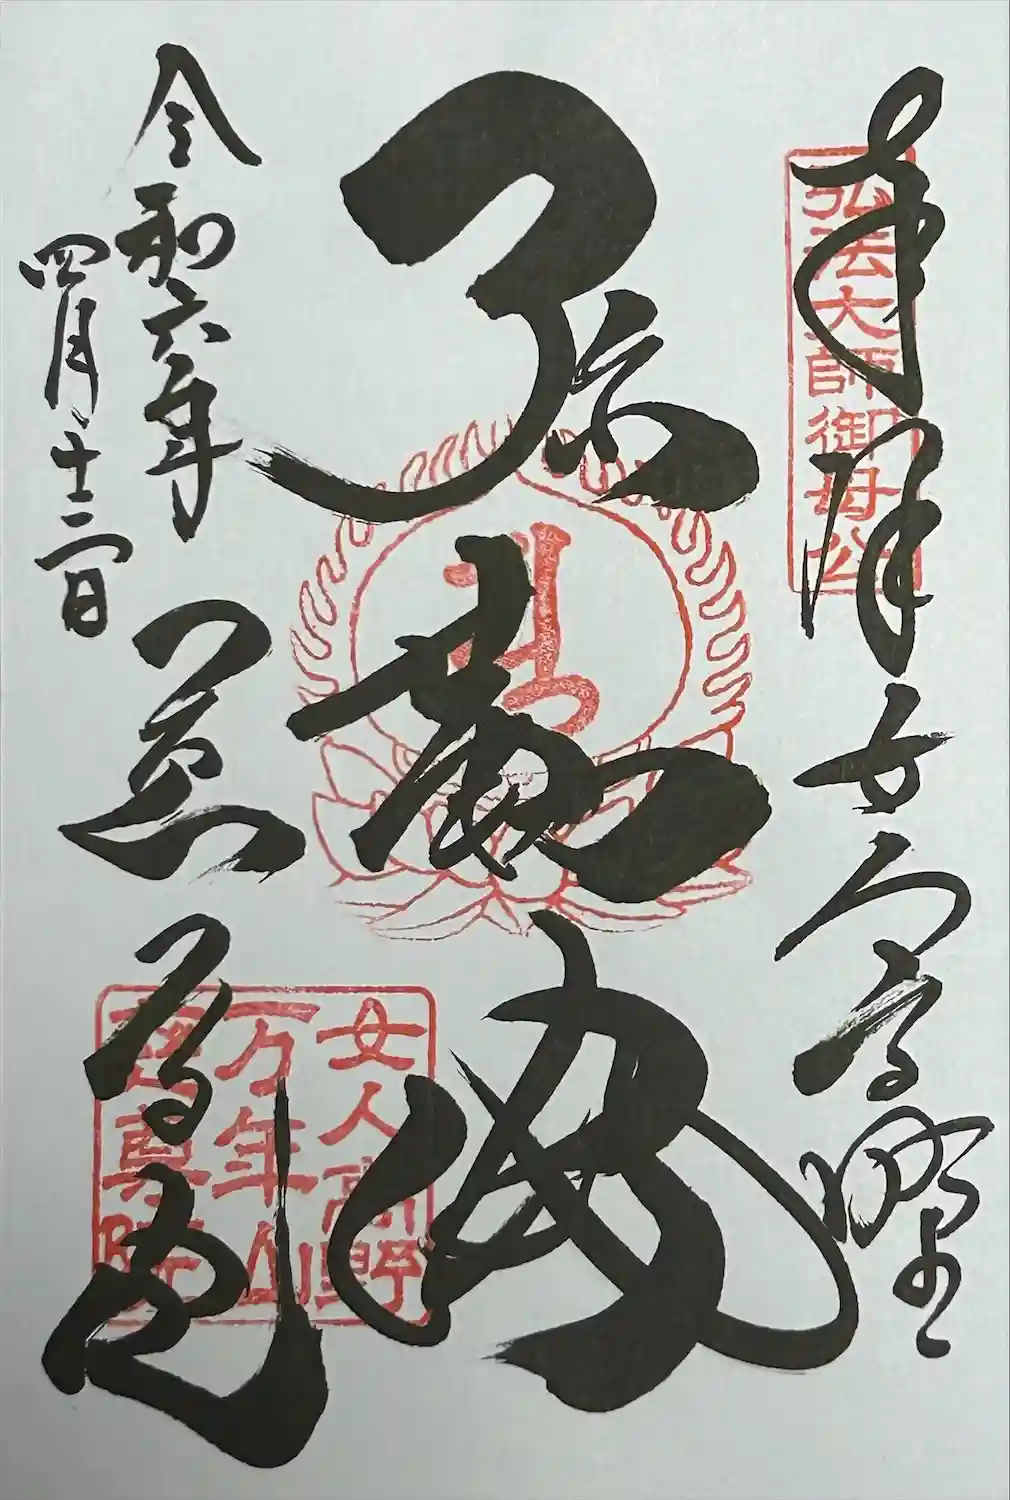 奉拝 女人高野
弘法大師御母公
弥勒佛
女人高野
万年山
慈尊院
慈尊院
令和六年
四月十二日